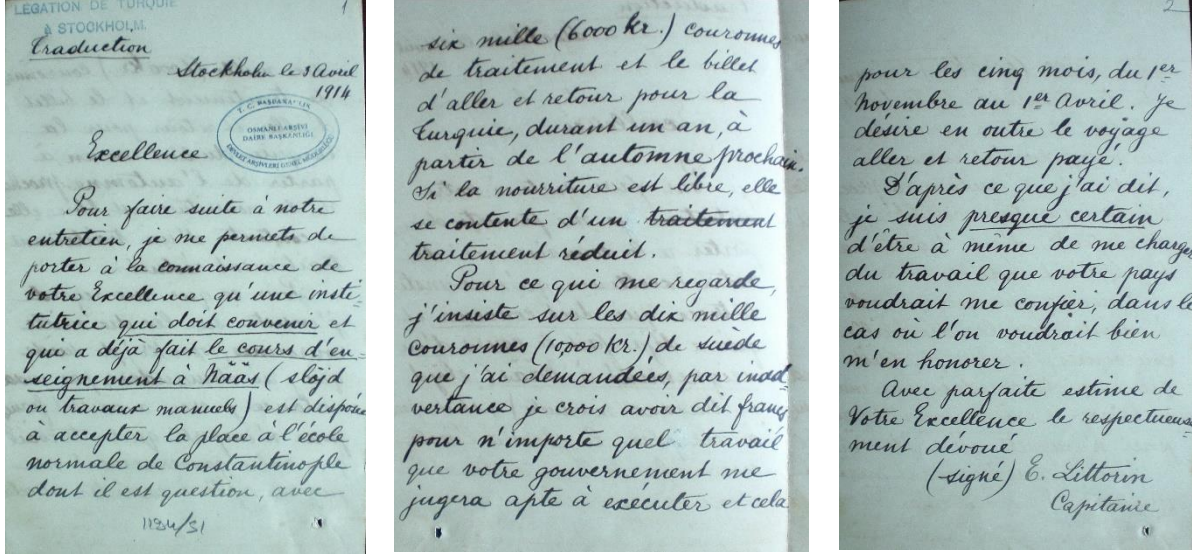 LÉGATION DE TURQUIE
à STOCKHOLM.
1
Traduction
Stockholm le 3 Avril
1914
T. C. BAŞBAKANLIK
OSMANLI ARŞİVİ
DAİRE BAŞKANLIĞI
DEVLET ARŞİVLERİ GENEL MÜDÜRLÜĞÜ
Excellence
Pour faire suite à notre
entretien, je me permets de
porter à la connaissance de
votre Excellence qu'une insti-
tutrice qui doit convenir et
qui a déjà fait le cours d'en-
seignement à Nääs (slöjd
ou travaux manuels) est disposée
à accepter la place à l'école
normale de Constantinople
dont il est question, avec
1194/51
six mille (6000 kr.) couronnes
de traitement et le billet
d'aller et retour pour la
Turquie, durant un an, à
partir de l'automne prochain.
Si la nourriture est libre, elle
se contente d'un traitement
traitement réduit.
Pour ce qui me regarde,
j'insiste sur les dix mille
couronnes (10,000 kr.) de suède
que j'ai demandées, par inad-
vertance je crois avoir dit francs
pour n'importe quel travail
que votre gouvernement me
jugera apte à exécuter et cela
2
pour les cinq mois, du 1er
Novembre au 1er Avril. Je
désire en outre le voyage
aller et retour payé.
D'après ce que j'ai dit,
je suis presque certain
d'être à même de me charger
du travail que votre pays
voudrait me confier, dans le
cas où l'on voudrait bien
m'en honorer.
Avec parfaite estime de
Votre Excellence le respectueuse-
ment dévoué
(signé) E. Littorin
Capitaine